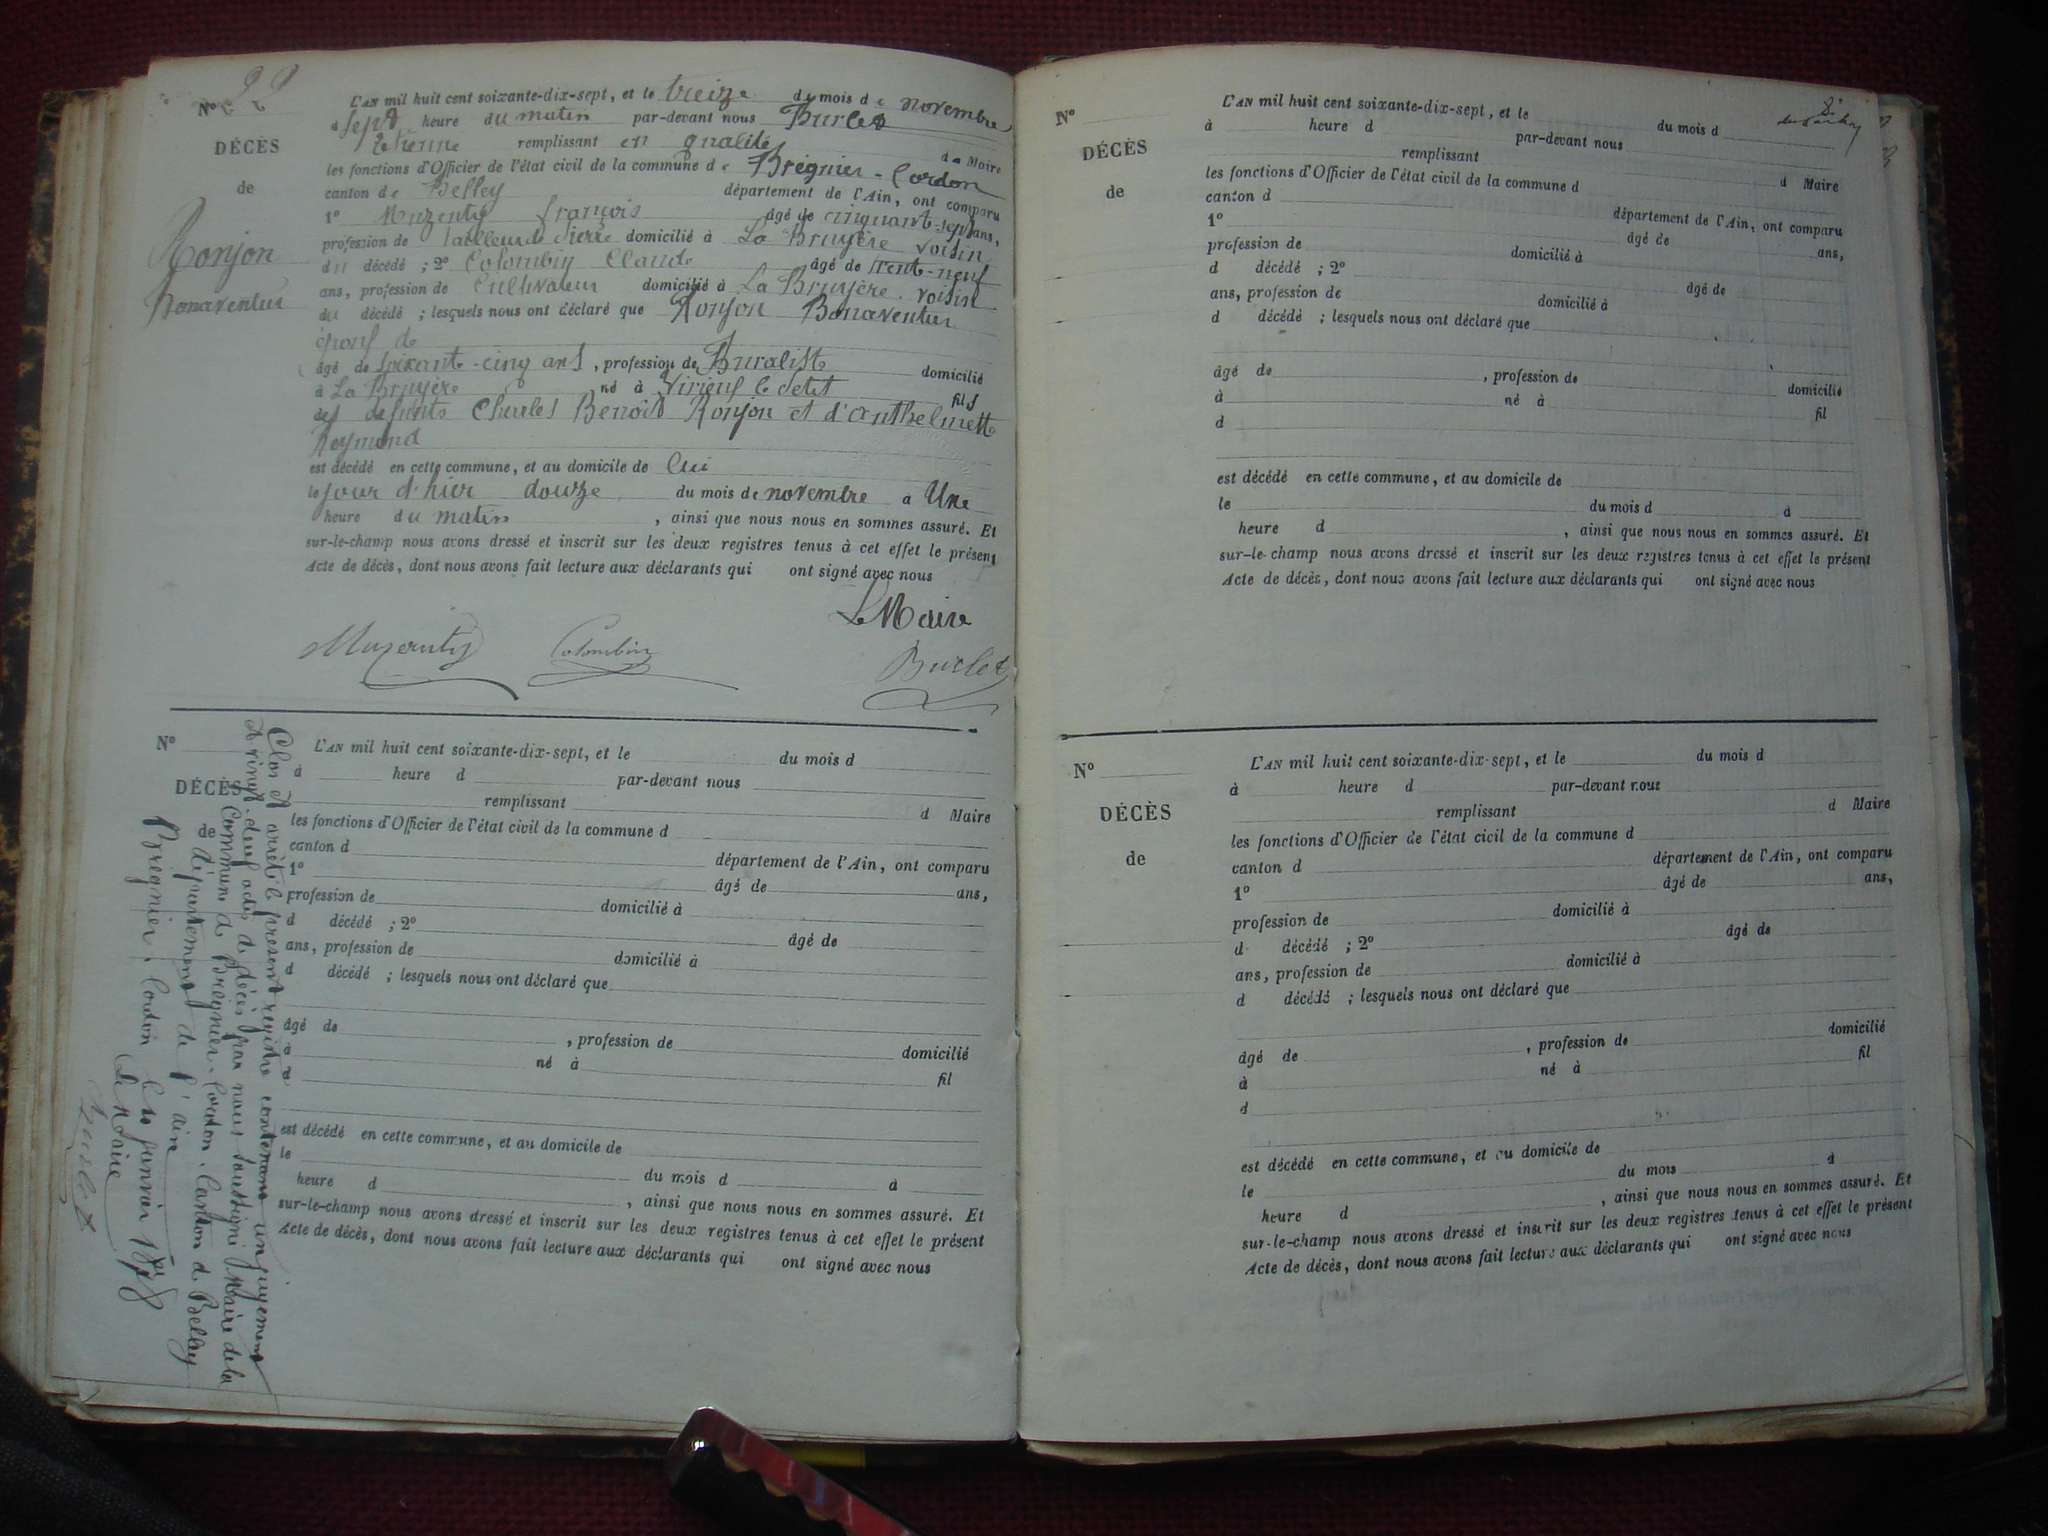 Nº 22
DÉCÈS
de
Ronjon
Bonaventur
L'AN mil huit cent soixante-dix-sept, et le treize du mois de novembre
à sept heure du matin par-devant nous Burlet
Etienne remplissant en qualité de Maire
les fonctions d'Officier de l'état civil de la commune de Brégnier-Cordon
canton de Belley département de l'Ain, ont comparu
1º Muzenty françois âgé de cinquant-sept ans,
profession de tailleur de pierre domicilié à La Bruyère voisin
du décédé ; 2º Colombin Claude âgé de trent-neuf
ans, profession de Cultivateur domicilié à La Bruyère voisin
du décédé ; lesquels nous ont déclaré que Ronjon Bonaventur
époux de
âgé de soixant-cinq ans, profession de Buraliste domicilié
à La Bruyère né à Virieux le petit fils
des défunts Charles Benoit Ronjon et d'anthelmette
Reymond
est décédé en cette commune, et au domicile de lui
le jour d'hier douze du mois de novembre à Une
heure du matin, ainsi que nous nous en sommes assuré. Et
sur-le-champ nous avons dressé et inscrit sur les deux registres tenus à cet effet le présent
Acte de décès, dont nous avons fait lecture aux déclarants qui ont signé avec nous
Le Maire
Muzenty Colombin Burlet
Nº
DÉCÈS
de
L'AN mil huit cent soixante-dix-sept, et le du mois d
à heure d par-devant nous
remplissant d Maire
les fonctions d'Officier de l'état civil de la commune d
canton d département de l'Ain, ont comparu
1º âgé de ans,
profession de domicilié à
d décédé ; 2º âgé de
ans, profession de domicilié à
d décédé ; lesquels nous ont déclaré que
âgé de , profession de domicilié
à né à fil
d
est décédé en cette commune, et au domicile de
le du mois d à
heure d , ainsi que nous nous en sommes assuré. Et
sur-le-champ nous avons dressé et inscrit sur les deux registres tenus à cet effet le présent
Acte de décès, dont nous avons fait lecture aux déclarants qui ont signé avec nous
Clos et arrêté le présent registre contenant uniquement
vingt-deux actes de décès par nous soussigné Maire de la
Commune de Brégnier-Cordon, Canton de Belley
département de l'ain
Brégnier-Cordon le janvier 1878
Le Maire
Burlet
Nº
DÉCÈS
de
L'AN mil huit cent soixante-dix-sept, et le du mois d
à heure d par-devant nous
remplissant d Maire
les fonctions d'Officier de l'état civil de la commune d
canton d département de l'Ain, ont comparu
1º âgé de ans,
profession de domicilié à
d décédé ; 2º âgé de
ans, profession de domicilié à
d décédé ; lesquels nous ont déclaré que
âgé de , profession de domicilié
à né à fil
d
est décédé en cette commune, et au domicile de
le du mois d à
heure d , ainsi que nous nous en sommes assuré. Et
sur-le-champ nous avons dressé et inscrit sur les deux registres tenus à cet effet le présent
Acte de décès, dont nous avons fait lecture aux déclarants qui ont signé avec nous
Nº
DÉCÈS
de
L'AN mil huit cent soixante-dix-sept, et le du mois d
à heure d par-devant nous
remplissant d Maire
les fonctions d'Officier de l'état civil de la commune d
canton d département de l'Ain, ont comparu
1º âgé de ans,
profession de domicilié à
d décédé ; 2º âgé de
ans, profession de domicilié à
d décédé ; lesquels nous ont déclaré que
âgé de , profession de domicilié
à né à fil
d
est décédé en cette commune, et au domicile de
le du mois à
heure d , ainsi que nous nous en sommes assuré. Et
sur-le-champ nous avons dressé et inscrit sur les deux registres tenus à cet effet le présent
Acte de décès, dont nous avons fait lecture aux déclarants qui ont signé avec nous